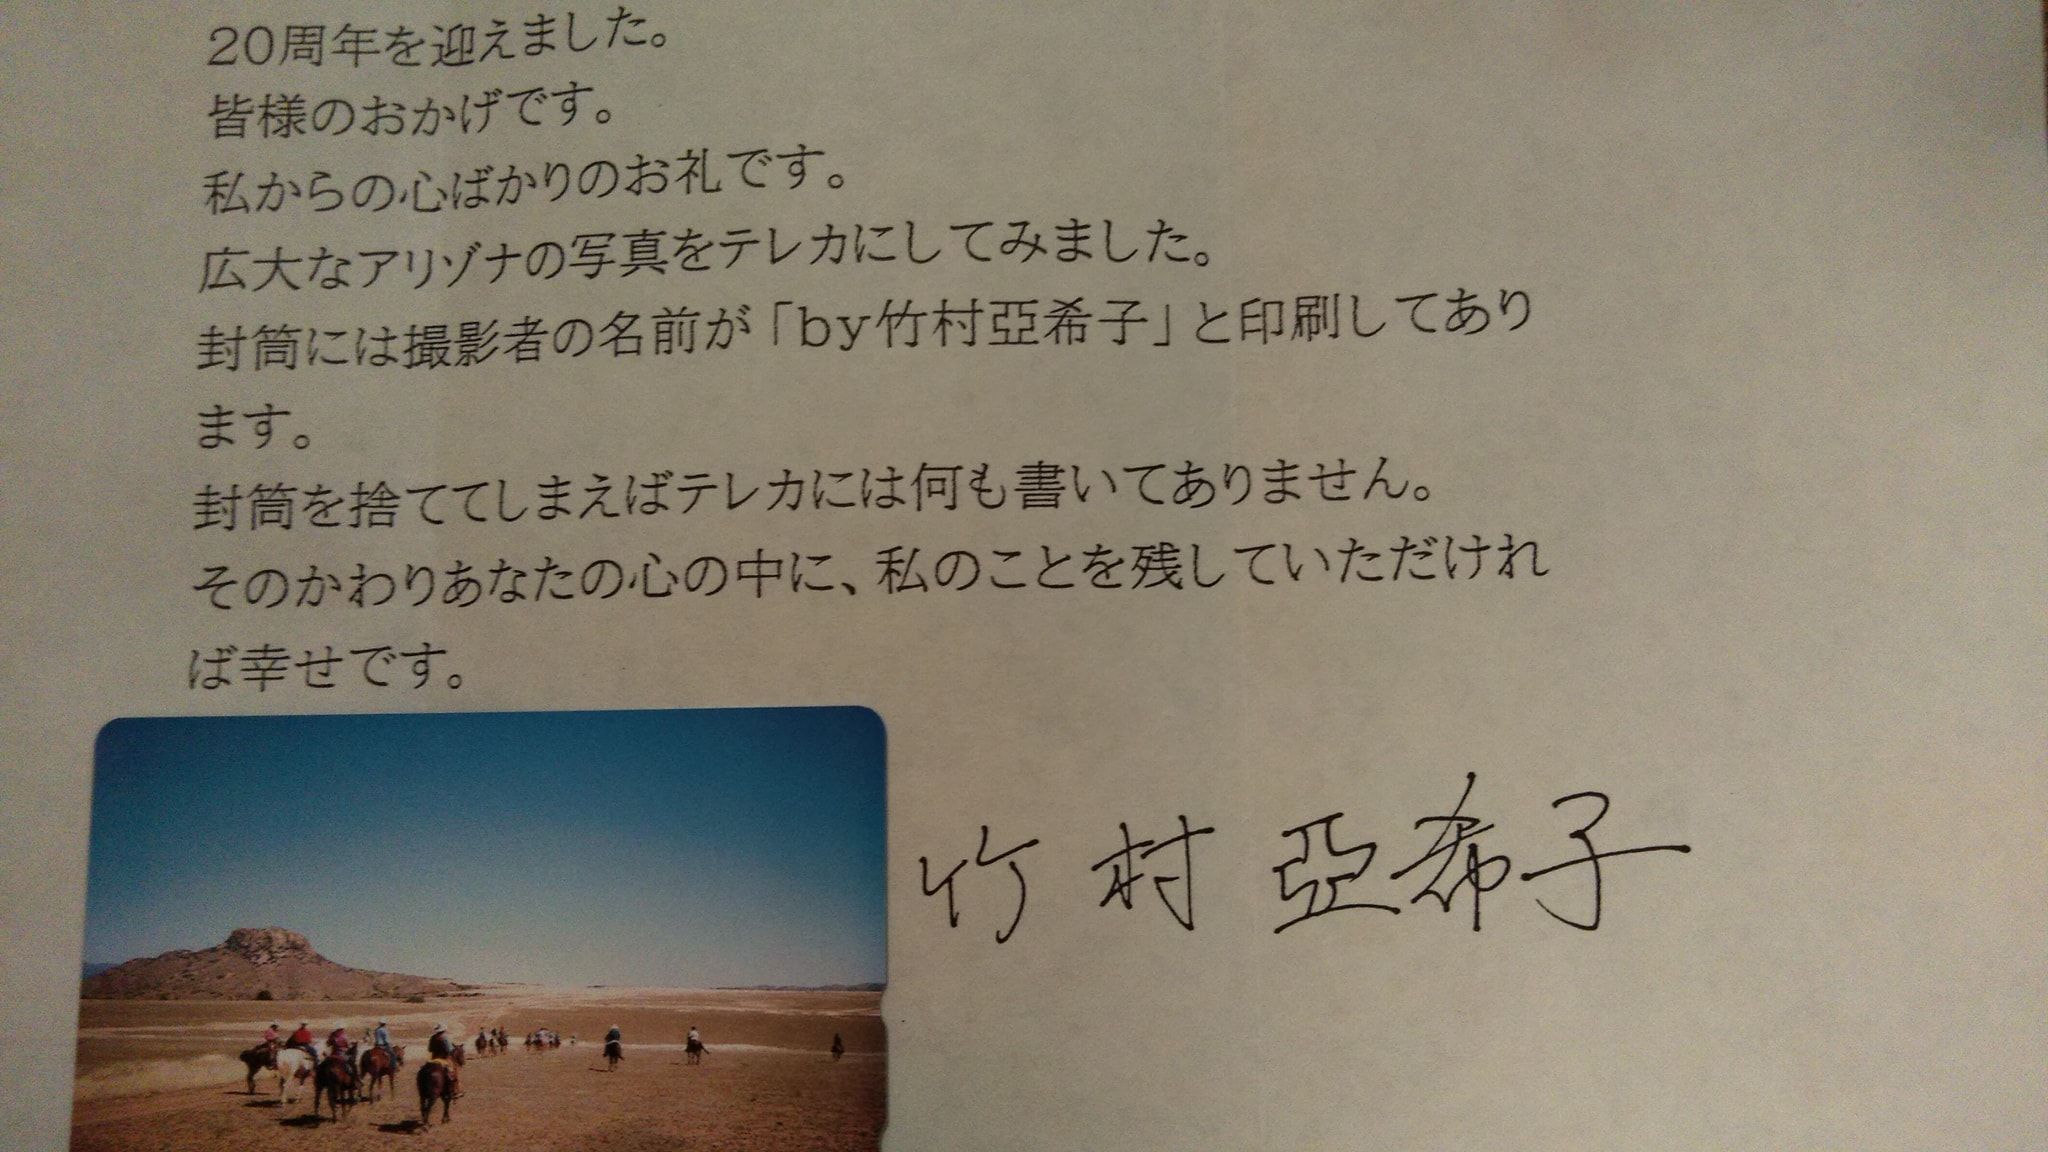 20周年を迎えました。
皆様のおかげです。
私からの心ばかりのお礼です。
広大なアリゾナの写真をテレカにしてみました。
封筒には撮影者の名前が「by竹村亞希子」と印刷してあり
ます。
封筒を捨ててしまえばテレカには何も書いてありません。
そのかわりあなたの心の中に、私のことを残していただけれ
ば幸せです。
竹村亞希子